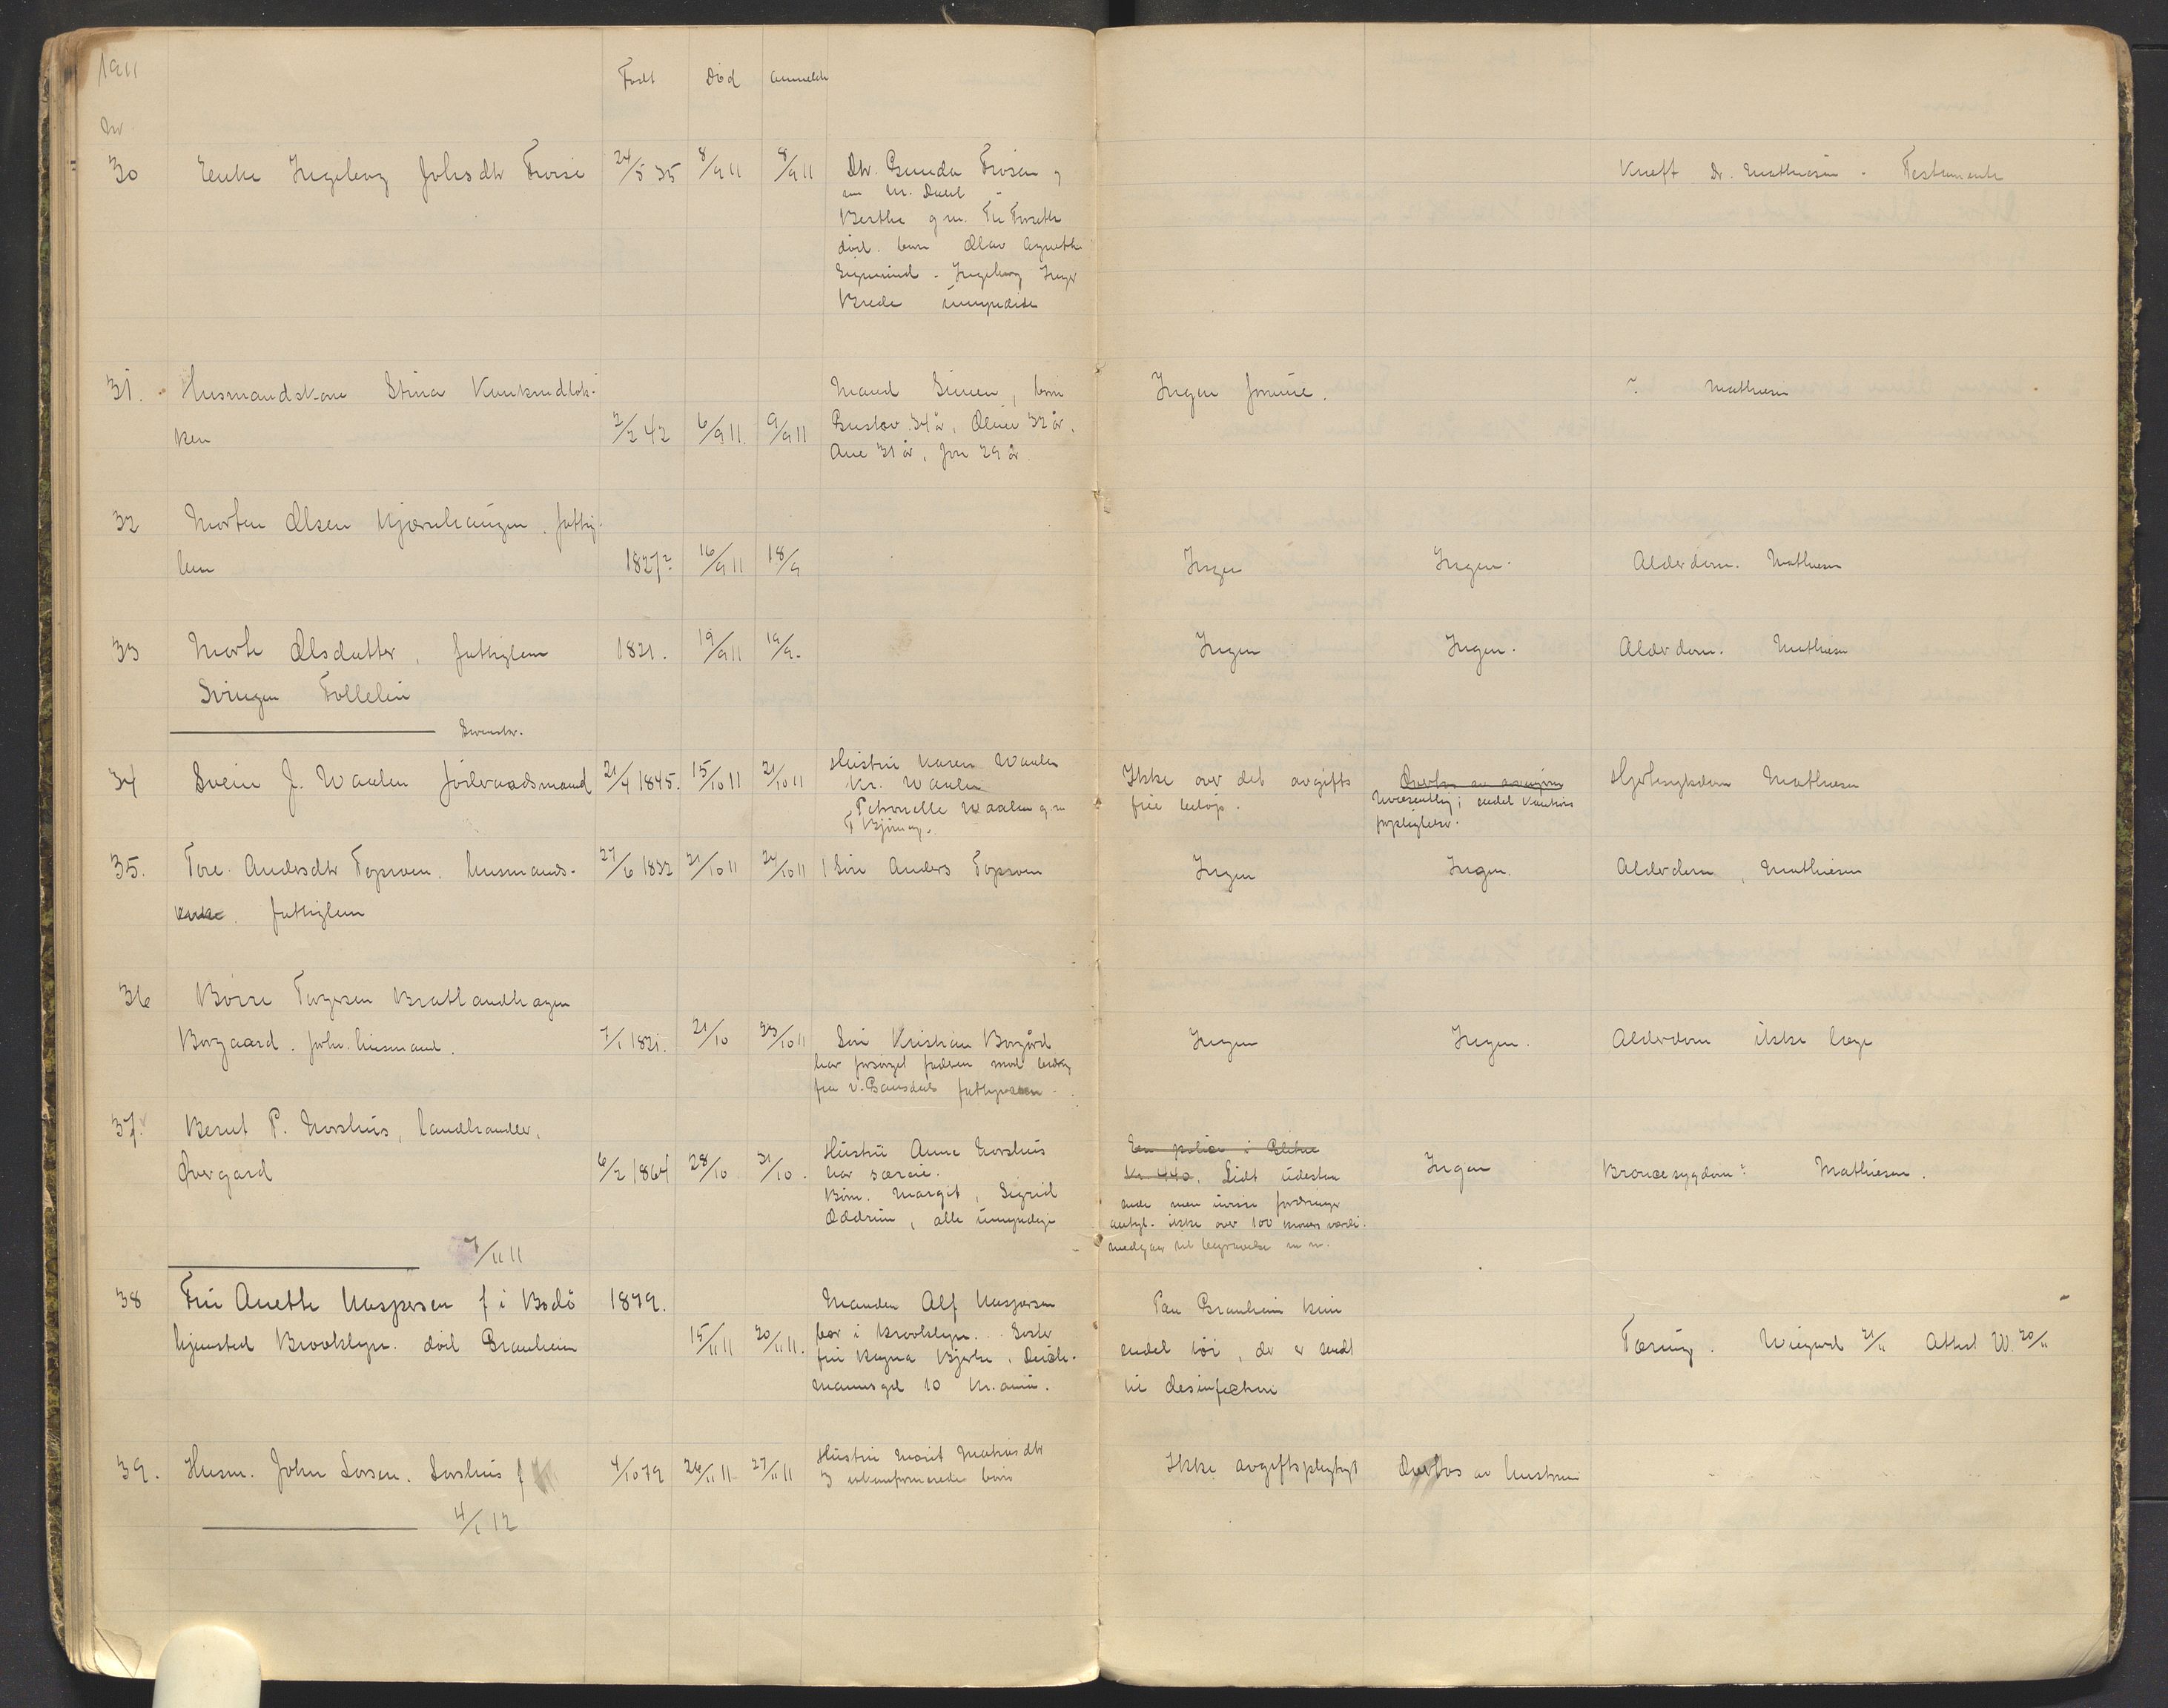 1911
Født Død anmeldt
Nr
30 Enke Ingeborg Johsdtr 24/5 35 8/9 11 8/9 11 Dtr. Gunda Frøsen og
Kreft Dr. Mathiesen - Testamente
Berthe g m.
død. barn Olav Agnethe
Sigmund - Ingeborg Inger
umyndige
31. Husmandskone Stina
Mand Simen, børn
Ingen formue.
? Mathiesen
ken 2/2 42 6/9 11. 9/9 11 Gustav 34 år, 32 år,
Ane 31 år, Jon 29 år
32 Morten Olsen Kjærnhaugen. fattig-
lem 1827? 16/9 11 18/9
Ingen Ingen. Alderdom. Mathiesen
33 Marte Olsdatter, fattiglem 1821. 19/9 11 19/9.
Ingen Ingen. Alderdom. Mathiesen
Svingen
34 Svein J. Waalen føderaadsmand 21/4 1845. 15/10 11 21/10 11 Hustru Karen Waalen
Kr. Waalen
Petronelle Waalen g.m
Ikke over det avgifts
frie beløp.
Uvæsentlig; endel kautions
forpligtelser.
Hjertesykdom Mathiesen
35. Tore Andersdtr. husmands- 27/6 1832 21/10 11 24/10 11 1 Søn Anders
Ingen Ingen. Alderdom, Mathiesen
enke. fattiglem
36 Børre Torgersen Bratlandhagen
Borgaard. forhv. husmand. 7/1 1821. 21/10 23/10 11 Søn Kristian Borgård
har forsørget faderen mod bidrag
fra V. Gausdals
Ingen Ingen. Alderdom ikke læge
37. Bernt P. Norshus, landhandler,
Øvergard 6/2 1864 28/10 31/10. Hustru Anne Norshus
har særeie.
Børn. Margit, Sigrid
Oddrun, alle umyndige
En police i Gjitne
Kr 440. Lidt utestaa
ende men uvisse fordringer
antgl. ikke over 100 kroners værdi.
medgaar til begravelse m m.
Ingen Broncesygdom? Mathiesen.
7/11 11
38 Fru Anette Kaspersen f i Bodø 1879.
Manden Alf Kaspersen
hjemsted Brooklyn. død Grauheim 15/11 11 20/11 11. bor i Brooklyn. Søster
fru Ragna Bjerke.
10 kr.
Paa Grauheim kun
endel tøi, der er sendt
til desinfection
Tæring. Wiegard 21/11 Attest W. 20/11
39. Husm. John Larsen. f 4/10 79 26/11 11 27/11 11 Hustru Marit Mathisdtr
3 ukonfirmerede barn
Ikke avgiftspligtigt Overtas av hustruen
4/1 12